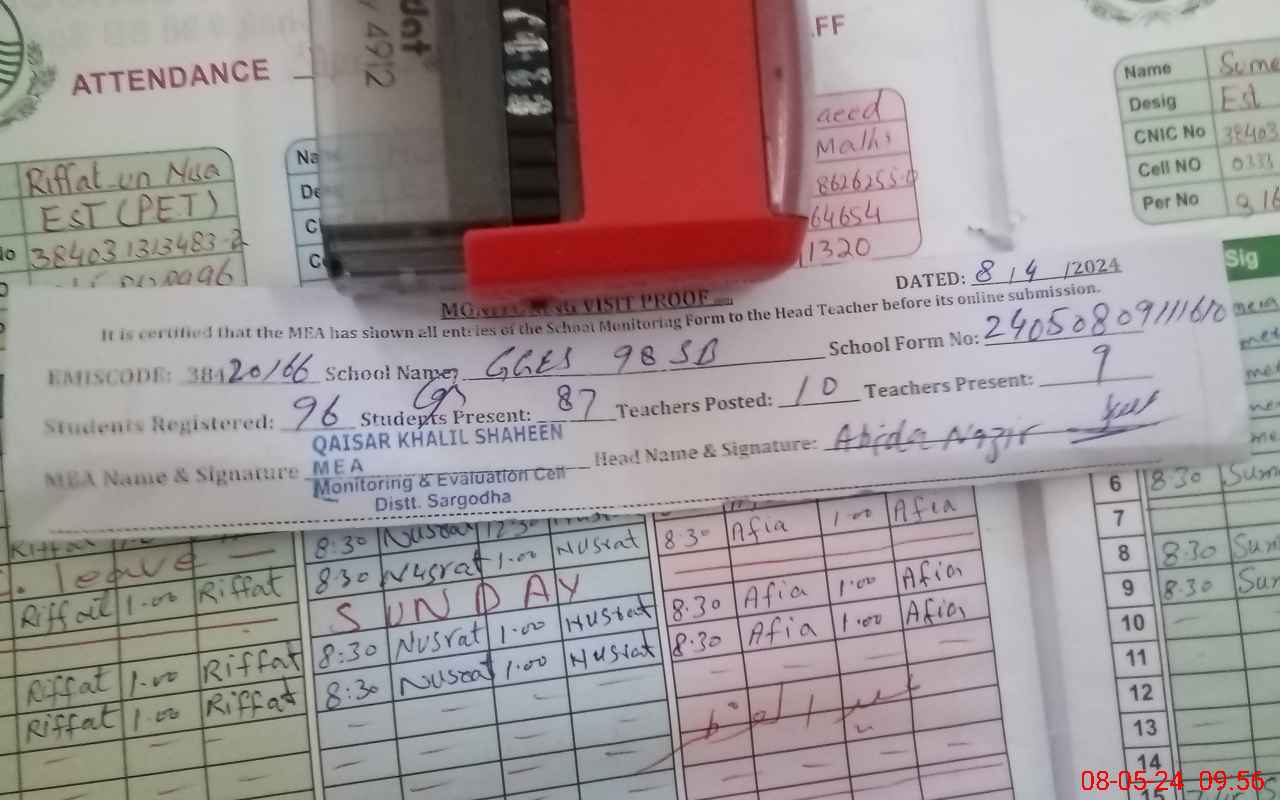 ATTENDANCE
FF
dat
4912
Riffat un Nisa
EST (PET)
38403 1313483-2
Na
De
C
C
aeed
Maths
8626255-0
64654
1320
Name Sume
Desig Est
CNIC No 38403
Cell NO 0333
Per No 916
Sig
DATED: 8/4/2024
MONITORING VISIT PROOF
It is certified that the MEA has shown all entries of the School Monitoring Form to the Head Teacher before its online submission.
EMISCODE: 38420166 School Name, GGES 98 SB School Form No: 24050809111610
Students Registered: 96 Students Present: 87 Teachers Posted: 10 Teachers Present: 9
MEA Name & Signature Head Name & Signature: Abida Nazir
QAISAR KHALIL SHAHEEN
MEA
Monitoring & Evaluation Cell
Distt. Sargodha
Riffat 1.00
leave
Riffat 1.00 Riffat
Riffat 1.00 Riffat
Riffat 1.00 Riffat
8:30 Nusrat 12:30
8:30 Nusrat 1.00 Nusrat
SUNDAY
8:30 Nusrat 1.00 Nusrat
8:30 Nusrat 1.00 Nusrat
8:30 Afia 1.00 Afia
8:30 Afia 1.00 Afia
8:30 Afia 1.00 Afia
6 8:30 Sum
7
8 8:30 Sum
9 8:30 Su
10
11
12
13
14
15
08-05-24 09:56